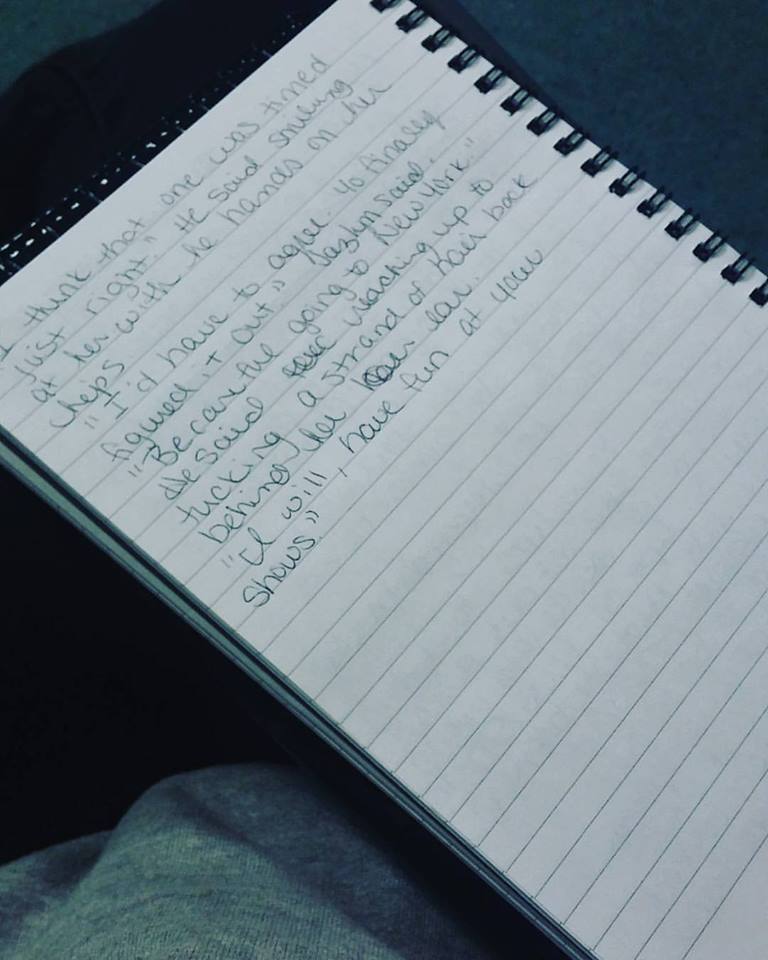 I think that one was timed
just right" He said smiling
at her with he hands on her
hips
"I'd have to agree. Yo finally
figured it out" Jazlyn said.
"Be careful going to New York."
He said reaching up to
tucking a strand of hair back
behind her ear.
"I will, have fun at your
shows"